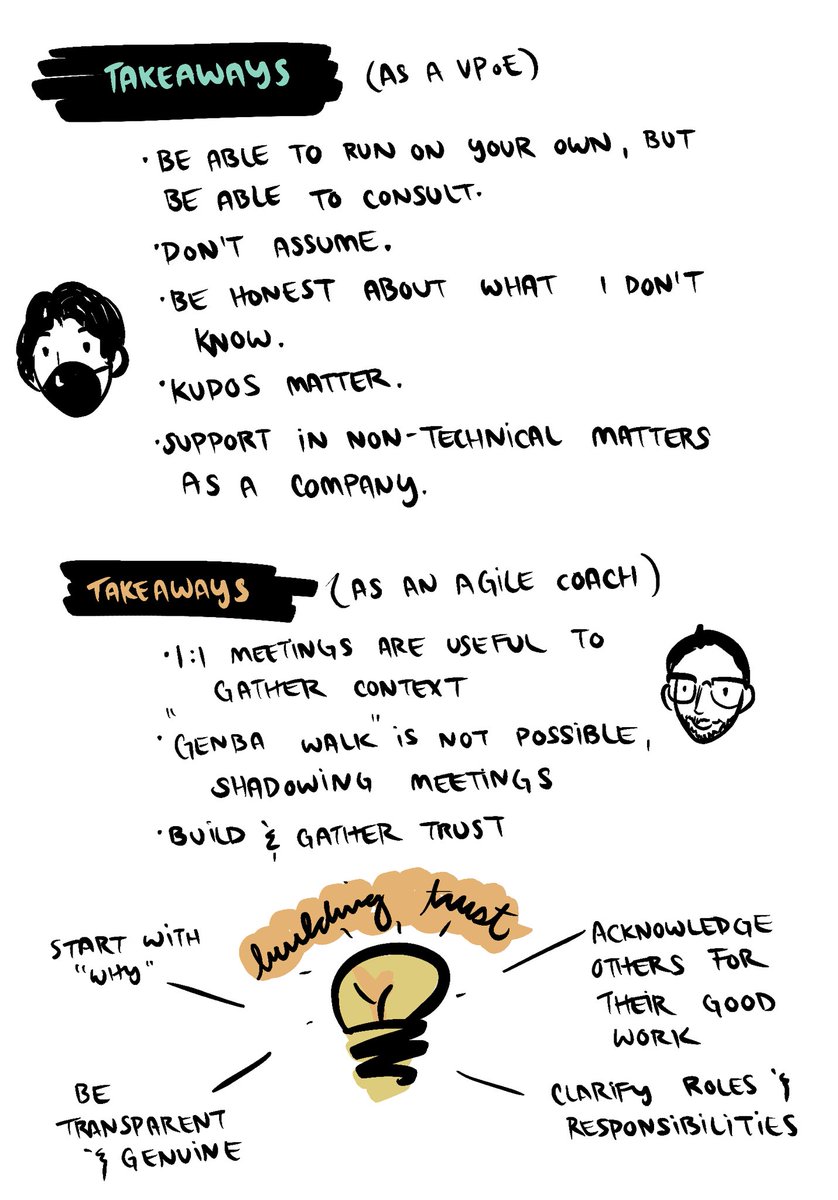 TAKEAWAYS (AS A VPoE)
· BE ABLE TO RUN ON YOUR OWN, BUT
BE ABLE TO CONSULT.
· DON'T ASSUME.
· BE HONEST ABOUT WHAT I DON'T
KNOW.
· KUDOS MATTER.
· SUPPORT IN NON-TECHNICAL MATTERS
AS A COMPANY.
TAKEAWAYS (AS AN AGILE COACH)
· 1:1 MEETINGS ARE USEFUL TO
GATHER CONTEXT
· "GENBA WALK" IS NOT POSSIBLE,
SHADOWING MEETINGS
· BUILD & GATHER TRUST
building trust
START WITH
"WHY"
ACKNOWLEDGE
OTHERS FOR
THEIR GOOD
WORK
BE
TRANSPARENT
& GENUINE
CLARIFY ROLES &
RESPONSIBILITIES